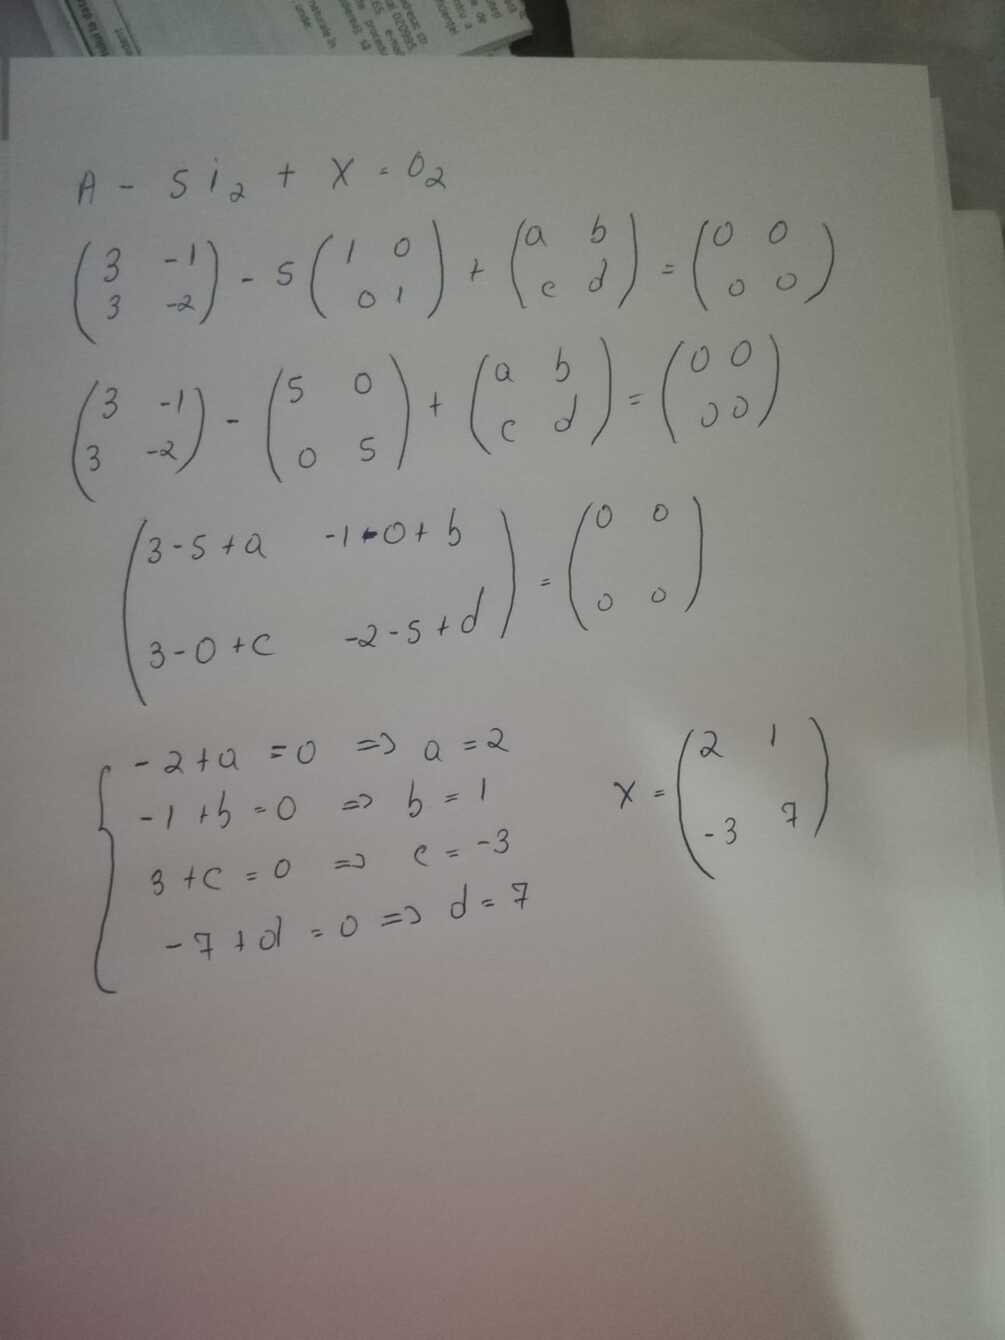 A - 5 i₂ + X = O₂
(3 -1; 3 -2) - 5 (1 0; 0 1) + (a b; c d) = (0 0; 0 0)
(3 -1; 3 -2) - (5 0; 0 5) + (a b; c d) = (0 0; 0 0)
(3-5+a -1-0+b; 3-0+c -2-5+d) = (0 0; 0 0)
{ -2+a = 0 => a = 2
-1+b = 0 => b = 1
3+c = 0 => c = -3
-7+d = 0 => d = 7
X = (2 1; -3 7)